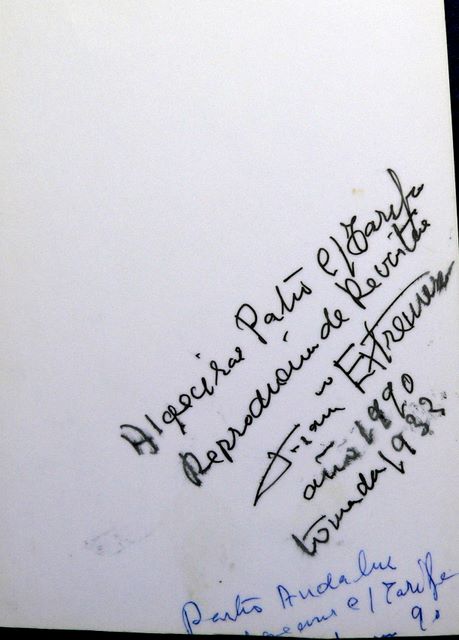 Algeciras Patio C/Tarifa
Reprodución de Revista
Juan Extremera
año 1990
tomada 1933
Patio Andaluz
C/Tarifa
90